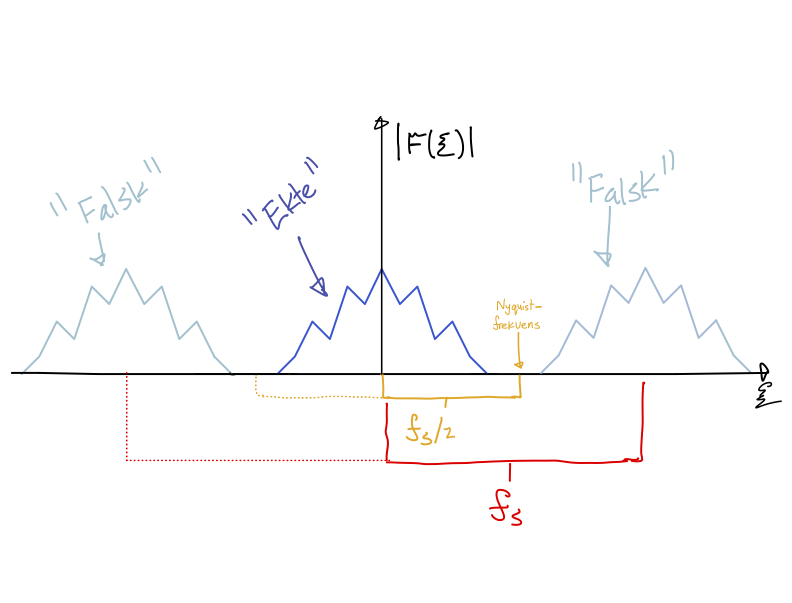 |F(ξ)|
"Falsk"
"Ekte"
"Falsk"
Nyquist-
frekvens
ξ
fs/2
fs